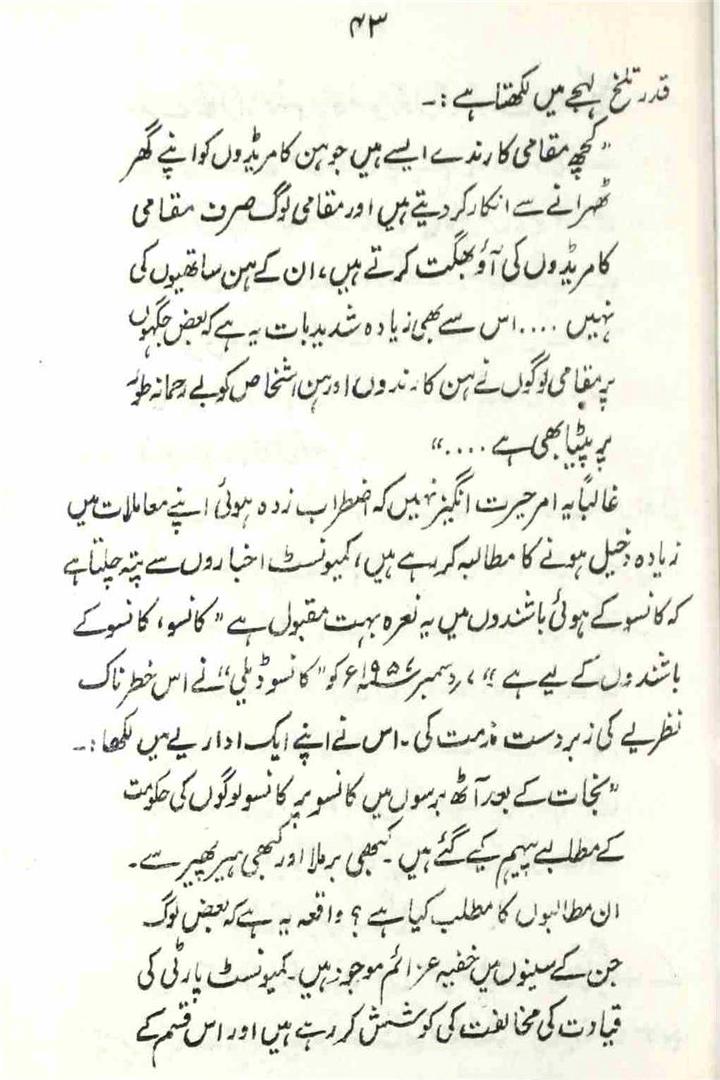 ۴۳
قدر تلخ لہجے میں لکھتا ہے :۔
”کچھ مقامی کارندے ایسے ہیں جو ہن کامریڈوں کو اپنے گھر
ٹھہرانے سے انکار کر دیتے ہیں اور مقامی لوگ صرف مقامی
کامریڈوں کی آؤ بھگت کرتے ہیں، ان کے ہن ساتھیوں کی
نہیں .... اس سے بھی زیادہ شدید بات یہ ہے کہ بعض جگہوں
پر مقامی لوگوں نے ہن کارندوں اور ہن اشخاص کو بے رحمانہ طور
پر پیٹا بھی ہے ....“
غالباً یہ امر حیرت انگیز نہیں کہ اضطراب زدہ ہوئی اپنے معاملات میں
زیادہ دخیل ہونے کا مطالبہ کر رہے ہیں، کمیونسٹ اخباروں سے پتہ چلتا ہے
کہ کانسو کے ہوئی باشندوں میں یہ نعرہ بہت مقبول ہے ”کانسو، کانسو کے
باشندوں کے لیے ہے“ ۷، دسمبر ۱۹۵۷ء کو ”کانسو ڈیلی“ نے اس خطرناک
نظریے کی زبردست مذمت کی۔ اس نے اپنے ایک اداریے میں لکھا :۔
”نجات کے بعد آٹھ برسوں میں کانسو پر کانسو لوگوں کی حکومت
کے مطالبے پیہم کیے گئے ہیں۔ کبھی برملا اور کبھی ہیر پھیر سے۔
ان مطالبوں کا مطلب کیا ہے ؟ واقعہ یہ ہے کہ بعض لوگ
جن کے سینوں میں خفیہ عزائم موجود ہیں۔ کمیونسٹ پارٹی کی
قیادت کی مخالفت کی کوشش کر رہے ہیں اور اس قسم کے